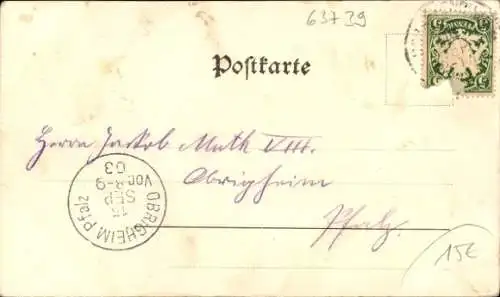 63739
Postkarte
Herrn Jakob Muth VIII.
Obrigheim
Pfalz.
OBRIGHEIM Pfalz
15
SEP
VOR 8-9
03
15€